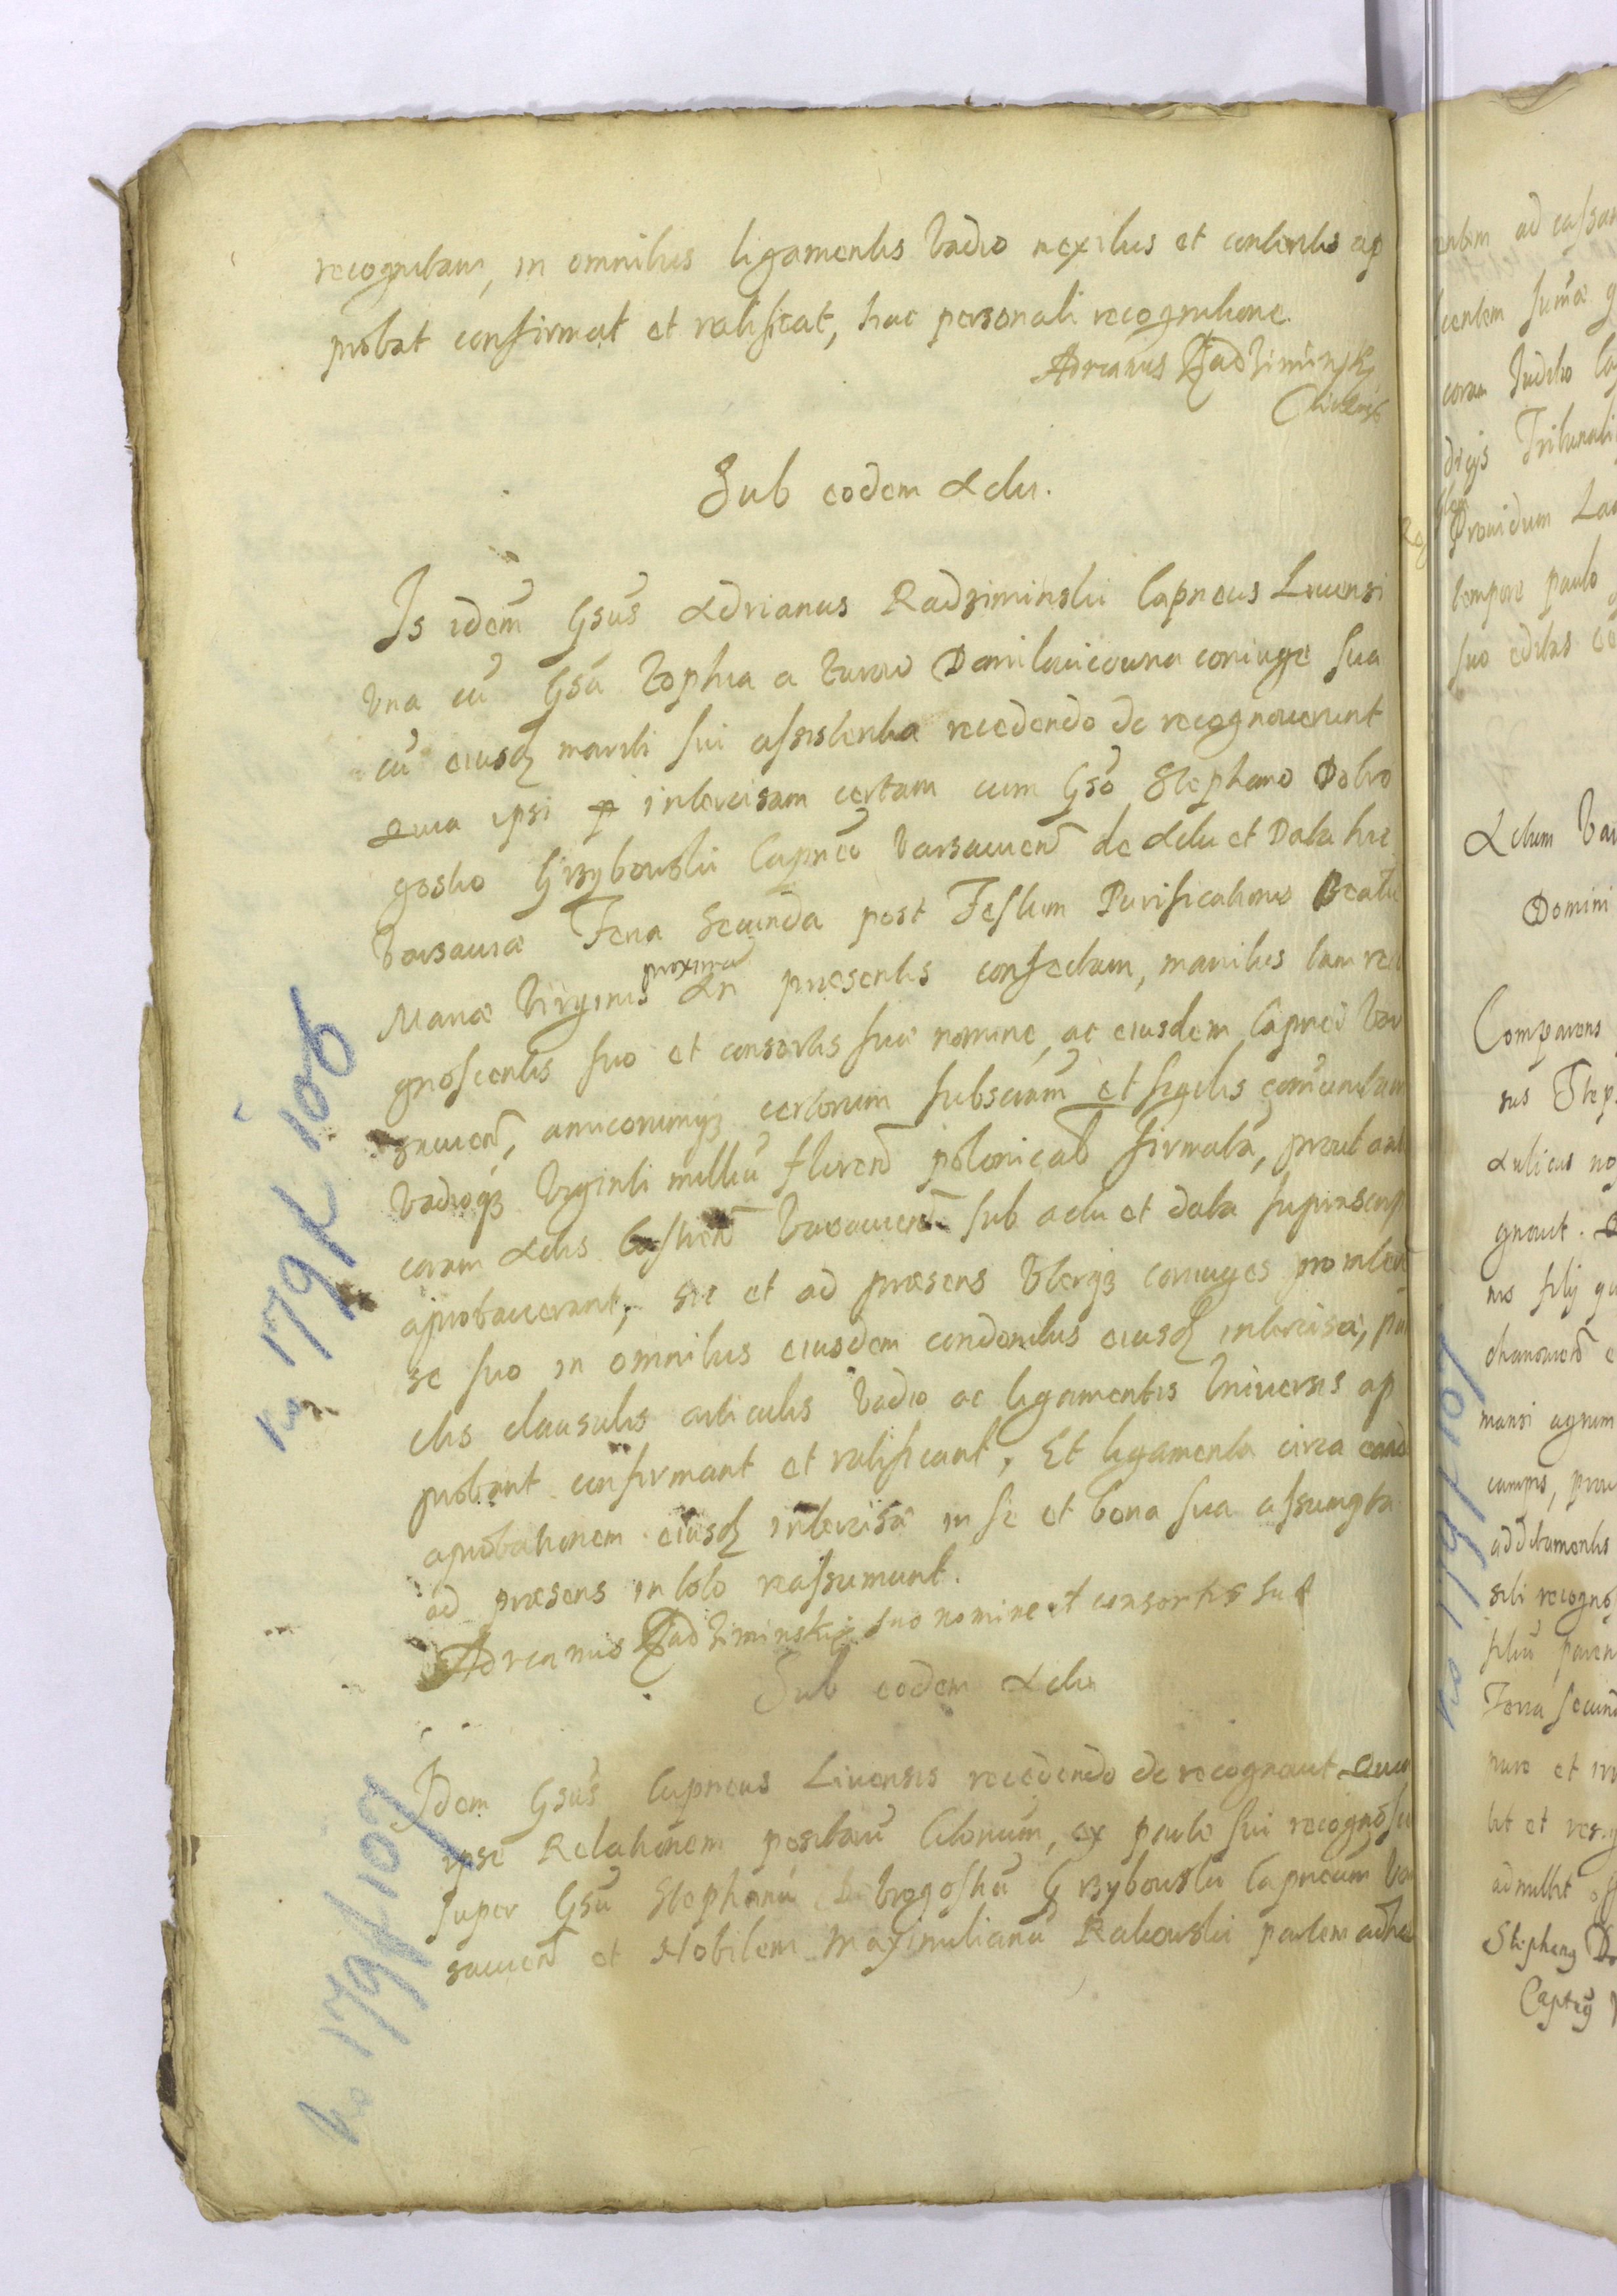 recognitam, in omnibus ligamentis Vadio nexibus et contentis ap
probat confirmat et ratificat, hac personali recognitione.
Adrianus Radziminsky
Sub eodem Actu.
Is idem Gsus Adrianus Radziminski Capneus Livensi
Vna cu Gsa Zophia a Zurow Danilowiczowna coniuge sua
cu eiusq mariti sui assistentia recedendo de recognoverunt
Quia ipsi p intercisam certam cum Gso Stephano Dobro
gostio Grzybowski Capneo Varsavien de Actu et Data hic
Varsaviæ Feria Secunda post Festum Purificationis Beatæ
proxima
Mariæ Virginis An præsentis confectam, manibus tam reco
gnoscentis suo et consortis suæ nomine, ac eiusdem Capnei Var
savien, amicorumq certorum subscriam et sigilis comunitam
Vadioq Viginti milliu floren polonical firmata, prout
coram Actis Castren Varsavien sub actu et data suprascrip
aprobaverant, sic et ad præsens Vterq coniuges
se suo in omnibus eiusdem condonibus eiusq intercisæ, pun
ctis clausulis articulis Vadio ac ligamentis Vniversis ap
probant confirmant et ratificant, Et ligamenta circa eand
aprobationem eiusq intercisæ in se et bona sua assumpta
ad præsens in toto reassumunt.
Adrianus Radziminskij suo nomine et consortis suæ
Sub eodem Actu
Idem Gsus Capneus Livensis recedendo de recognovit Quia
ipse Relationem positam Citonum, ex parte sui recognoscen
super Gsu Stephanu Dobrogostiu Grzybowski Capneum Var
savien et Nobilem Maximilianu Rakowski partem
no 179/K 106
no 179/K 107
entem ad cassan
centem sumæ
coram Judtio
Tribunali
Providum
tempore paulo
suo editas
Actum Var
Domini
Comparens
sus Step
Aulicus
gnovit.
nis filij
mansi agrum
campis, prou
additamentis
sibi recogno
filiu paren
Feria secun
pure et
bit et
admittit
Stephang Do
Captrg
no 179/K 107